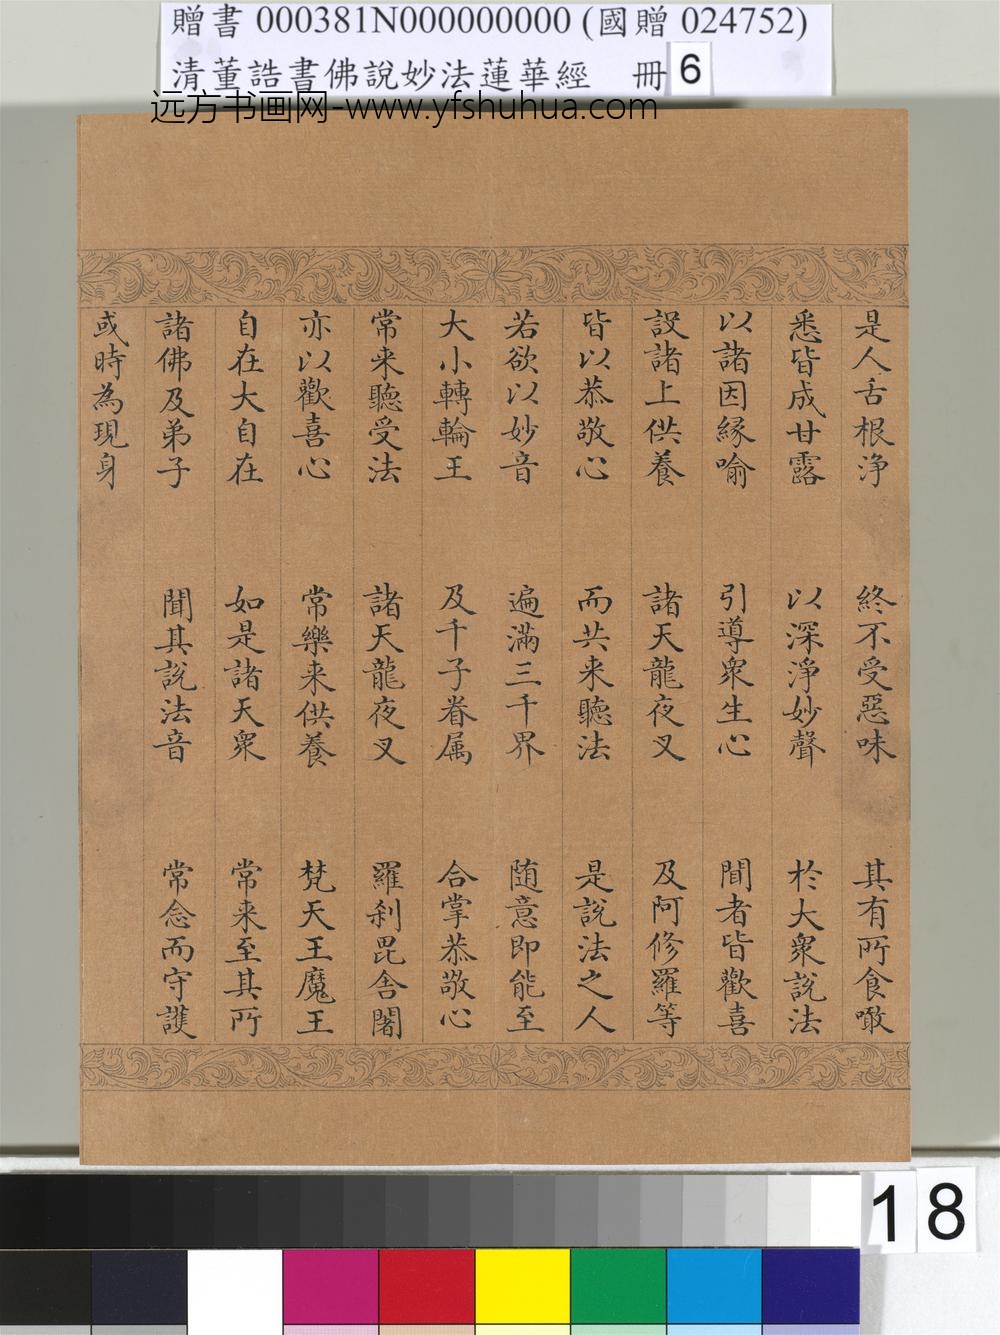 贈書 000381N000000000 (國贈 024752)
清董誥書佛說妙法蓮華經 冊 6
远方书画网-www.yfshuhua.com
是人舌根淨 終不受惡味 其有所食噉
悉皆成甘露 以深淨妙聲 於大眾說法
以諸因緣喻 引導眾生心 聞者皆歡喜
設諸上供養 諸天龍夜叉 及阿修羅等
皆以恭敬心 而共来聽法 是說法之人
若欲以妙音 遍滿三千界 随意即能至
大小轉輪王 及千子眷属 合掌恭敬心
常来聽受法 諸天龍夜叉 羅刹毘舍闍
亦以歡喜心 常樂来供養 梵天王魔王
自在大自在 如是諸天眾 常来至其所
諸佛及弟子 聞其說法音 常念而守護
或時為現身
18